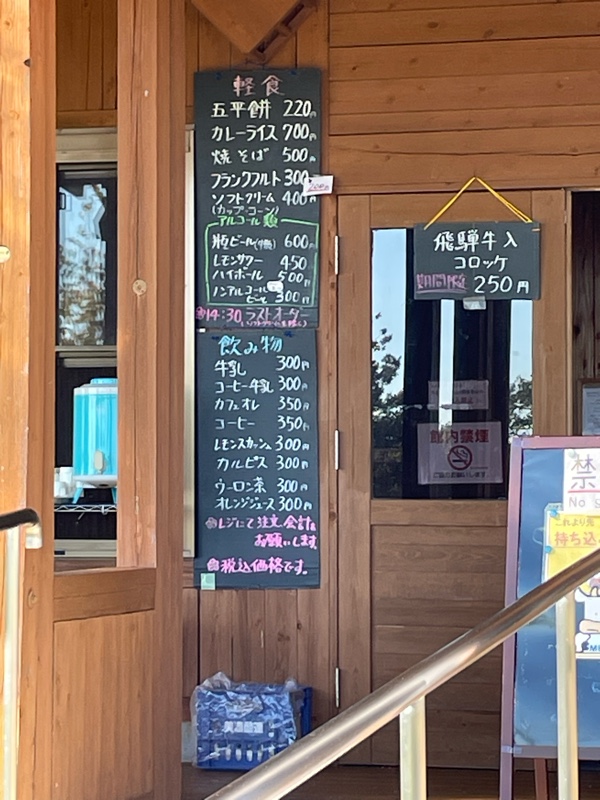 軽食
五平餅 220円
カレーライス 700円
焼そば 500円
フランクフルト 300円
ソフトクリーム 400円
(カップ・コーン)
アルコール類
瓶ビール(中瓶) 600円
レモンサワー 450
ハイボール 500円
ノンアルコールビール 300円
14:30 ラストオーダー
飲み物
牛乳 300円
コーヒー牛乳 300円
カフェオレ 350円
コーヒー 350円
レモンスカッシュ 300円
カルピス 300円
ウーロン茶 300円
オレンジジュース 300円
レジにて注文、会計を
お願いします。
税込価格です。
飛騨牛入
コロッケ
期間限定 250円
館内禁煙
禁
No s
これより先
持ち込